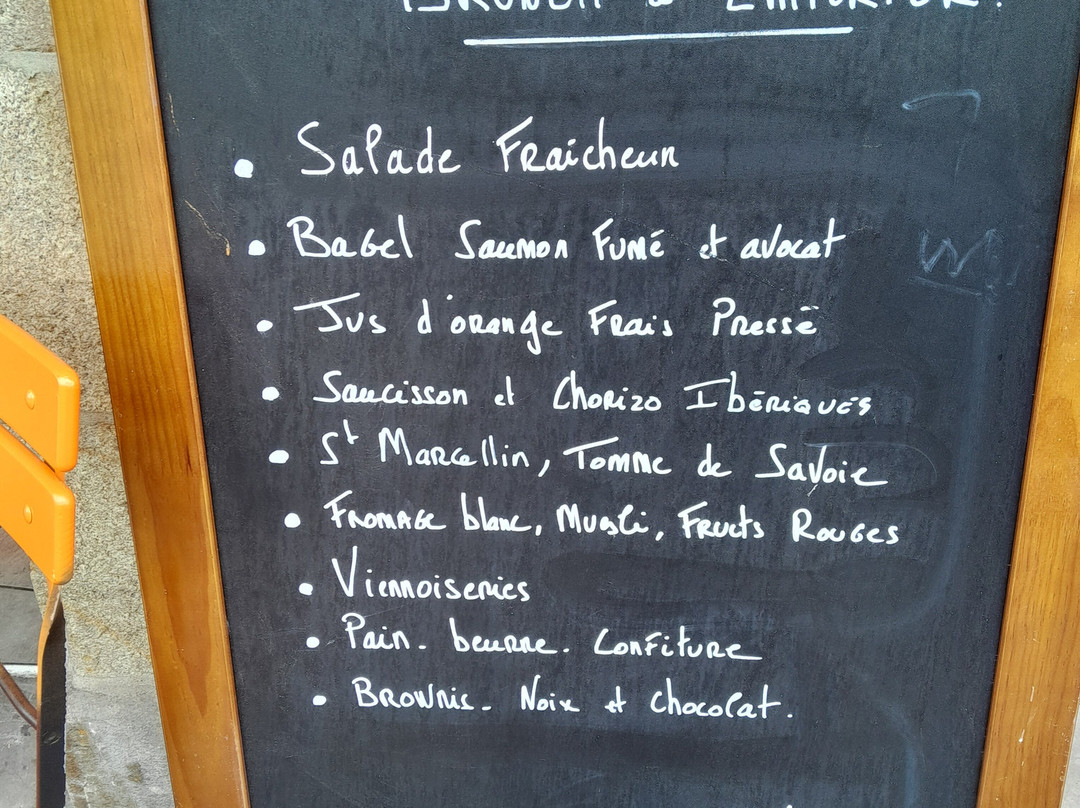 BRUNCH à EMPORTER!
• Salade Fraicheur
• Bagel Saumon Fumé et avocat
• Jus d'orange Frais Pressé
• Saucisson et Chorizo Ibériques
• St Marcellin, Tomme de Savoie
• Fromage blanc, Muesli, Fruits Rouges
• Viennoiseries
• Pain. beurre. Confiture
• Brownie. Noix et chocolat.